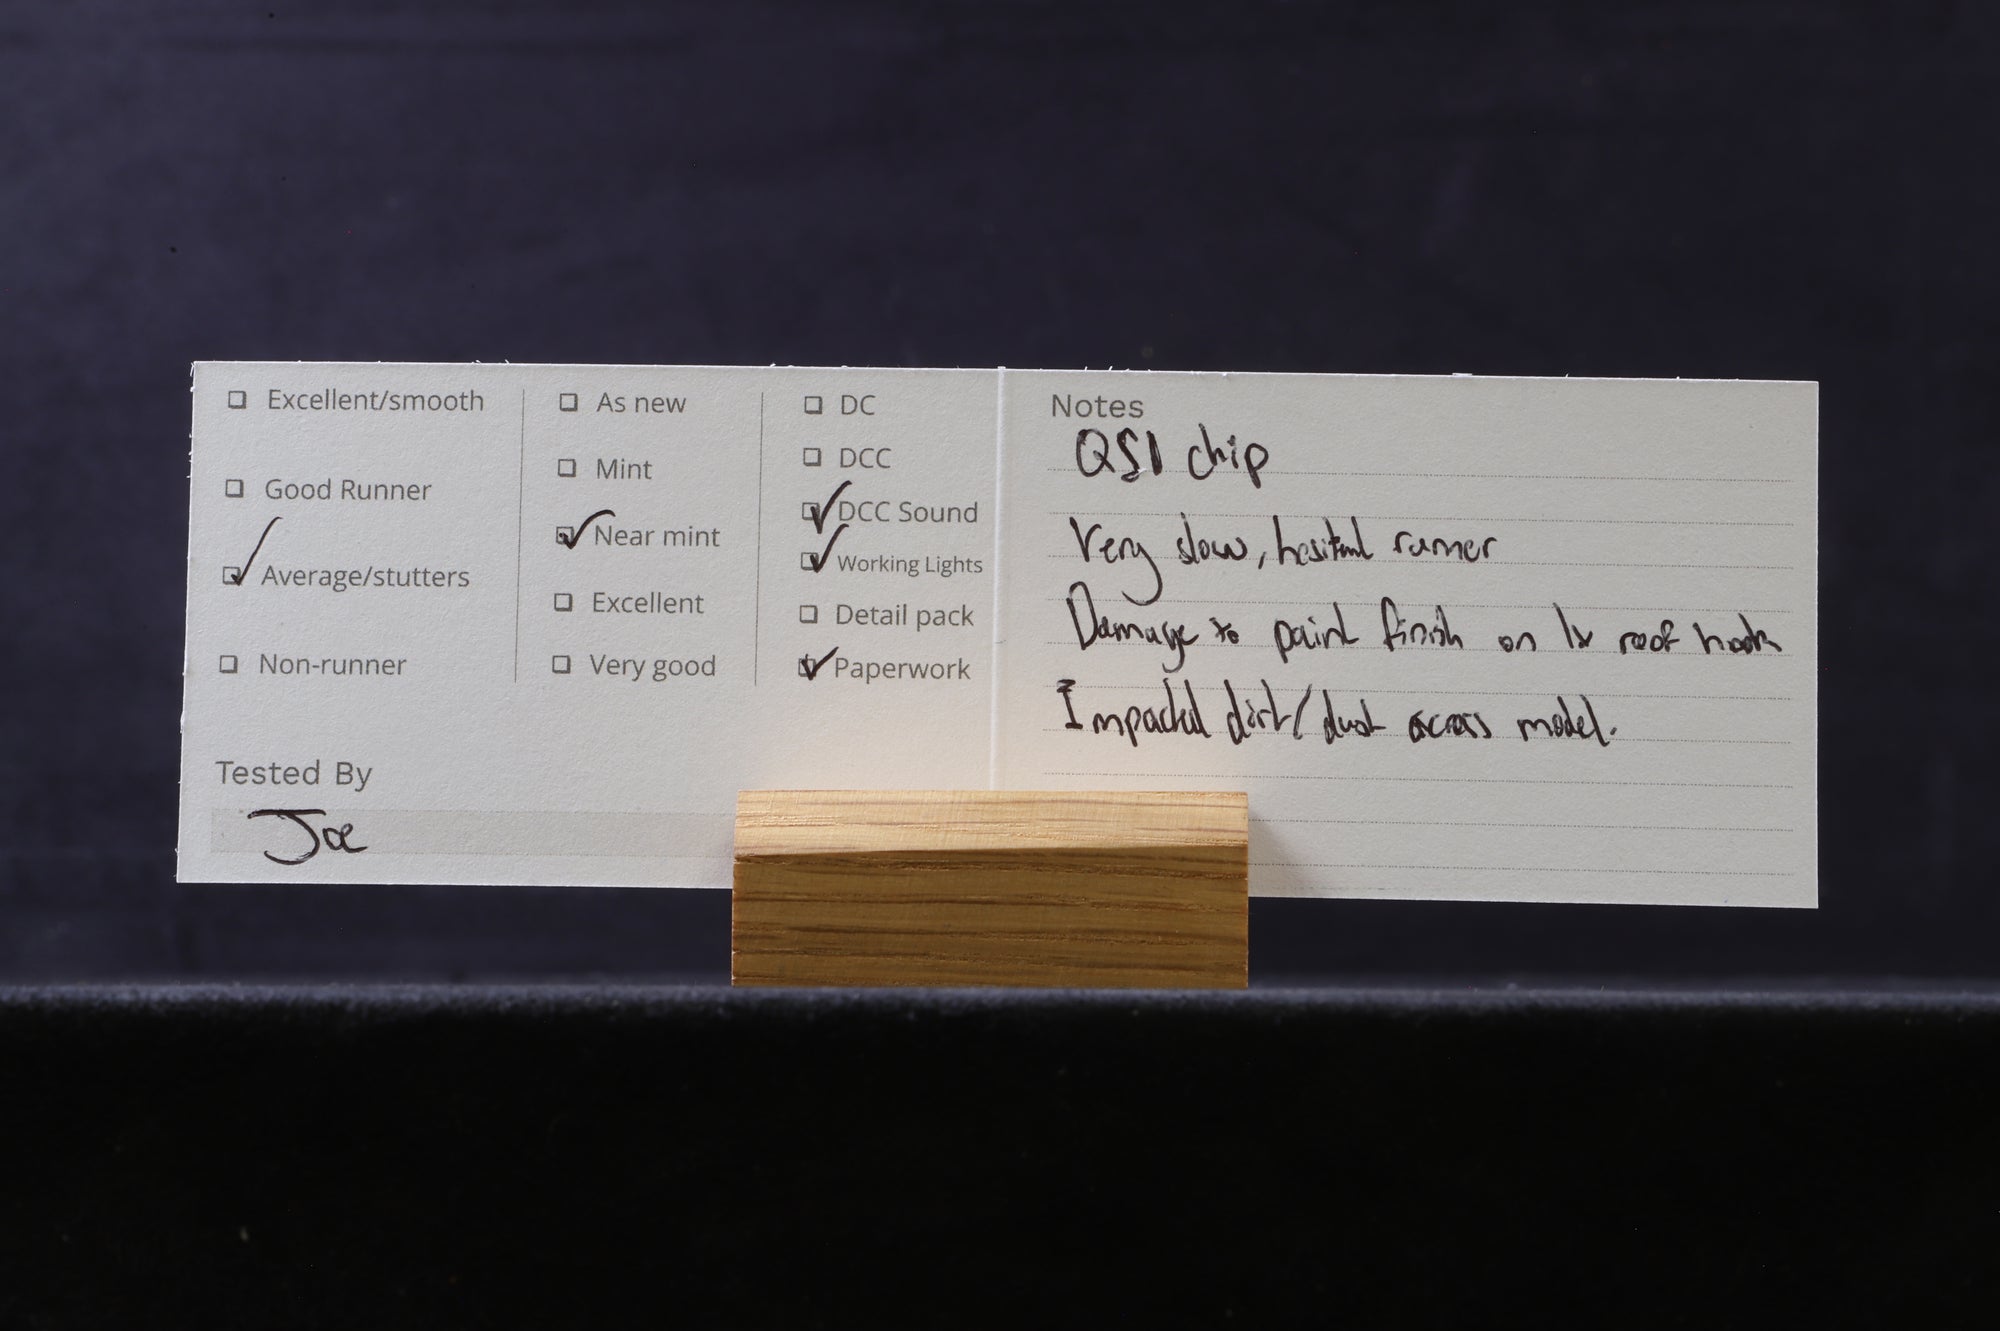 ☐ Excellent/smooth
☐ Good Runner
☑ Average/stutters
☐ Non-runner
☐ As new
☐ Mint
☑ Near mint
☐ Excellent
☐ Very good
☐ DC
☐ DCC
☑ DCC Sound
☑ Working Lights
☐ Detail pack
☑ Paperwork
Tested By
Joe
Notes
QSI chip
Very slow, hesitant runner
Damage to paint finish on 1x roof hook
Impacted dirt/dust across model.